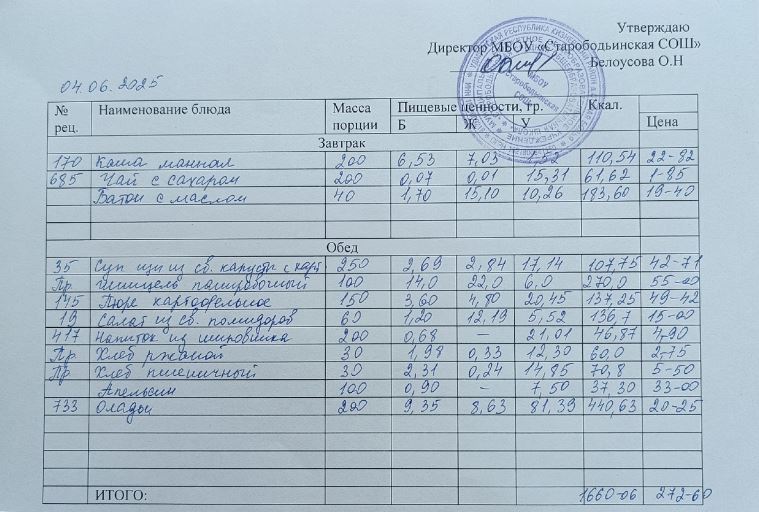 Утверждаю
Директор МБОУ «Старободьинская СОШ»
Белоусова О.Н
04.06.2025
№ рец. Наименование блюда Масса порции Пищевые ценности, гр. Ккал. Цена
Б Ж У
Завтрак
170 Каша манная 200 6,53 7,03 110,54 22-82
685 Чай с сахаром 200 0,07 0,01 15,31 61,62 1-85
Батон с маслом 40 1,70 15,10 10,26 183,60 19-40
Обед
35 Суп щи из св. капусты с карт 250 2,69 2,84 17,14 107,75 42-71
Пр. шницель панировочный 100 14,0 22,0 6,0 270,0 55-00
145 Пюре картофельное 150 3,60 4,80 20,45 137,25 49-42
19 Салат из св. помидоров 60 1,20 12,19 5,52 136,7 15-00
417 Напиток из шиповника 200 0,68 – 21,01 46,87 4,90
Пр. Хлеб ржаной 30 1,98 0,33 12,30 60,0 2,75
Пр Хлеб пшеничный 30 2,31 0,24 14,85 70,8 5-50
Апельсин 100 0,90 – 7,50 37,30 33-00
733 Оладьи 200 9,35 8,63 81,39 440,63 20-25
ИТОГО: 1660-06 272-60